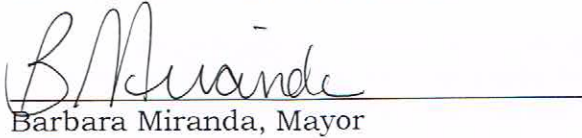 B Miranda
Barbara Miranda, Mayor